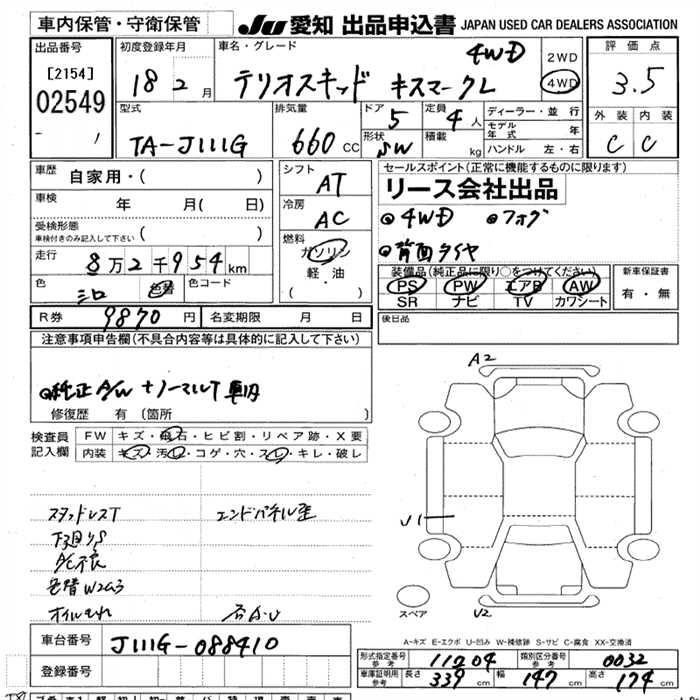 車内保管・守衛保管
JU 愛知 出品申込書 JAPAN USED CAR DEALERS ASSOCIATION
出品番号
[2154]
02549
初度登録年月
18 2 月
車名・グレード
4WD
テリオスキッド キスマークL
2WD
4WD
評価点
3.5
外装 内装
C C
型式
TA-J111G
排気量
660 CC
ドア
5
定員
4 人
形状
SW
積載
kg
ディーラー・並行
モデル年式 年
ハンドル 左・右
車歴
自家用・( )
車検
年 月( 日)
受検形態
車検付きのみ記入して下さい ( )
走行
8万2千954km
色
シロ 色替
色コード
シフト
AT
冷房
AC
燃料
ガソリン
軽・油
( )
セールスポイント(正常に機能するものに限ります)
リース会社出品
4WD フォグ
背面タイヤ
装備品(純正品に限り○をつけてください)
PS PW エアB AW
SR ナビ TV カワシート
新車保証書
有・無
R券 9870 円
名変期限 月 日
後日品
注意事項申告欄(不具合内容等は具体的に記入して下さい)
純正A/W+ノーマルT車内
修復歴 有(箇所 )
検査員記入欄
FW キズ・飛石・ヒビ割・リペア跡・X要
内装 キズ・汚し・コゲ・穴・スレ・キレ・破レ
スタッドレスT エンドパネル歪
下廻りS
A/C不良
色替W2G3
オイルもれ
A2
J1
U2
スペア
A-キズ E-エクボ U-凹み W-補修跡 S-サビ C-腐食 XX-交換済
車台番号
J111G-088410
登録番号
形式指定番号 参考 11204
類別区分番号 参考 0032
車庫証明用 参考 長さ 339 cm 幅 147 cm 高さ 174 cm